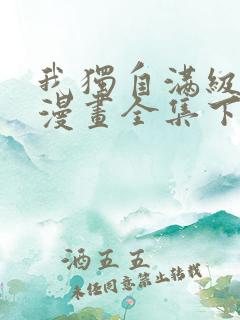 我獨自滿級
漫畫全集下
酒五五
未经同意禁止转载